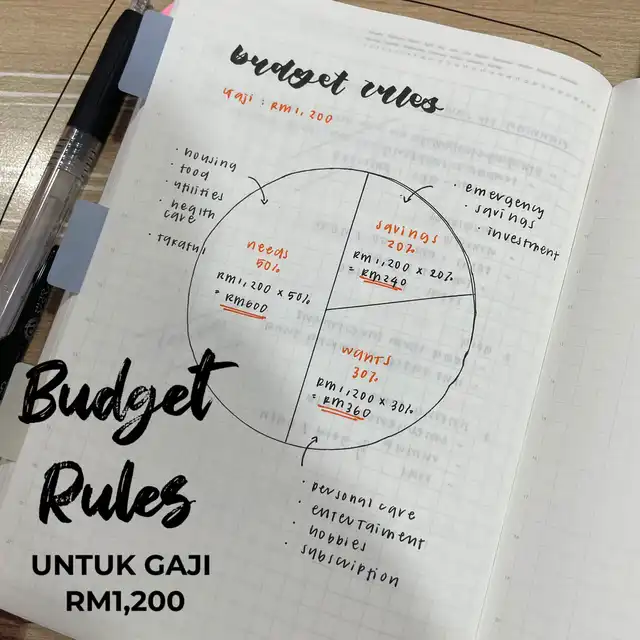 budget rules
gaji : RM1,200
· housing
· food
· utilities
· health
care
· takaful
needs
50%
RM1,200 x 50%
= RM600
savings
20%
RM1,200 x 20%
= RM240
· emergency
· savings
· investment
wants
30%
RM1,200 x 30%
= RM360
· personal care
· entertaiment
· hobbies
· subscription
Budget
Rules
UNTUK GAJI
RM1,200